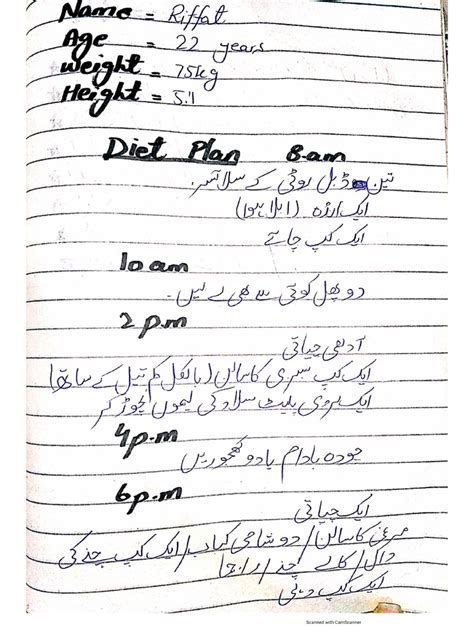 Name = Riffat
Age = 22 years
weight = 75kg
Height = 5.1
Diet Plan 8am
تین ڈبل روٹی کے سلائس
ایک انڈہ (ابلا ہوا)
ایک کپ چائے
10 am
دو پھل کوئی سے بھی لے لیں۔
2 p.m
آدھی چپاتی
ایک کپ سبزی کا سالن (بالکل کم تیل کے ساتھ)
ایک بڑی پلیٹ سلاد کی لیموں نچوڑ کر
4 p.m
چودہ بادام یا دو کھجوریں
6 p.m
ایک چپاتی
مرغی کا سالن / دو شامی کباب / ایک کپ چنے کی
دال / کالے چنے /
ایک کپ دہی
Scanned with CamScanner